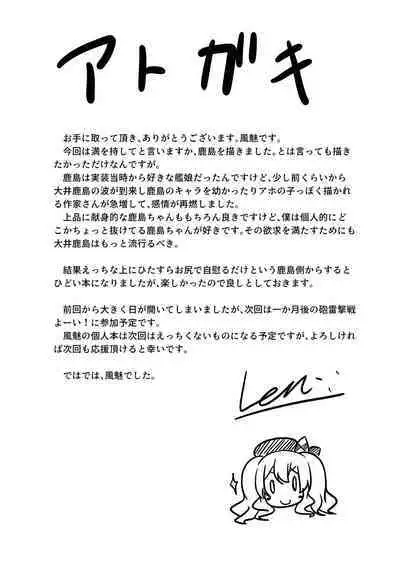 アトガキ
お手に取って頂き、ありがとうございます。風魅です。
今回は満を持してと言いますか、鹿島を描きました。とは言っても描き
たかっただけなんですが。
鹿島は実装当時から好きな艦娘だったんですけど、少し前くらいから
大井鹿島の波が到来し鹿島のキャラを幼かったりアホの子っぽく描かれ
る作家さんが急増して、感情が再燃しました。
上品に献身的な鹿島ちゃんももちろん良きですけど、僕は個人的にど
こかちょっと抜けてる鹿島ちゃんが好きです。その欲求を満たすためにも
大井鹿島はもっと流行るべき。
結果えっちな上にひたすらお尻で自慰るだけという鹿島側からすると
ひどい本になりましたが、楽しかったので良しとしておきます。
前回から大きく日が開いてしまいましたが、次回は一か月後の砲雷撃戦
よーい！に参加予定です。
風魅の個人本は次回はえっちくないものになる予定ですが、よろしけれ
ば次回も応援頂けると幸いです。
ではでは、風魅でした。